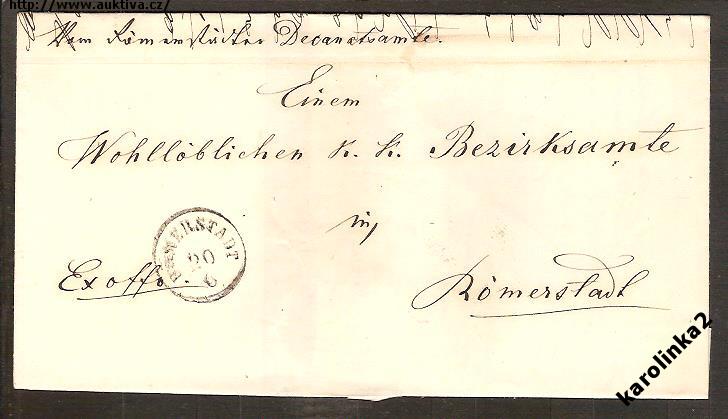 http://www.auktiva.cz/
Vom Römerstädter Decanatsamte.
Einem
Wohllöblichen k. k. Bezirksamte
in
RŒMERSTADT
20
6
Exoffo.
Römerstadt
karolinka2